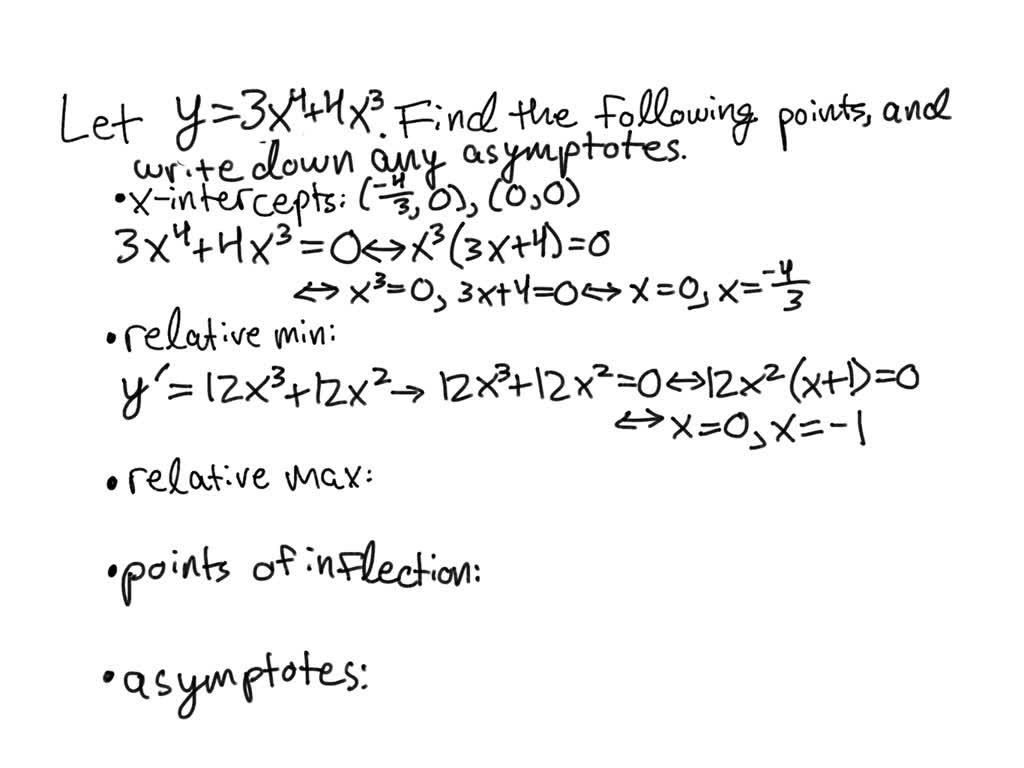 Let y=3x⁴+4x³. Find the following points, and
write down any asymptotes.
•x-intercepts: (-4/3, 0), (0,0)
3x⁴+4x³=0↔x³(3x+4)=0
↔x³=0, 3x+4=0↔x=0, x=-4/3
•relative min:
y′=12x³+12x²→12x³+12x²=0↔12x²(x+1)=0
↔x=0, x=-1
•relative max:
•points of inflection:
•asymptotes: